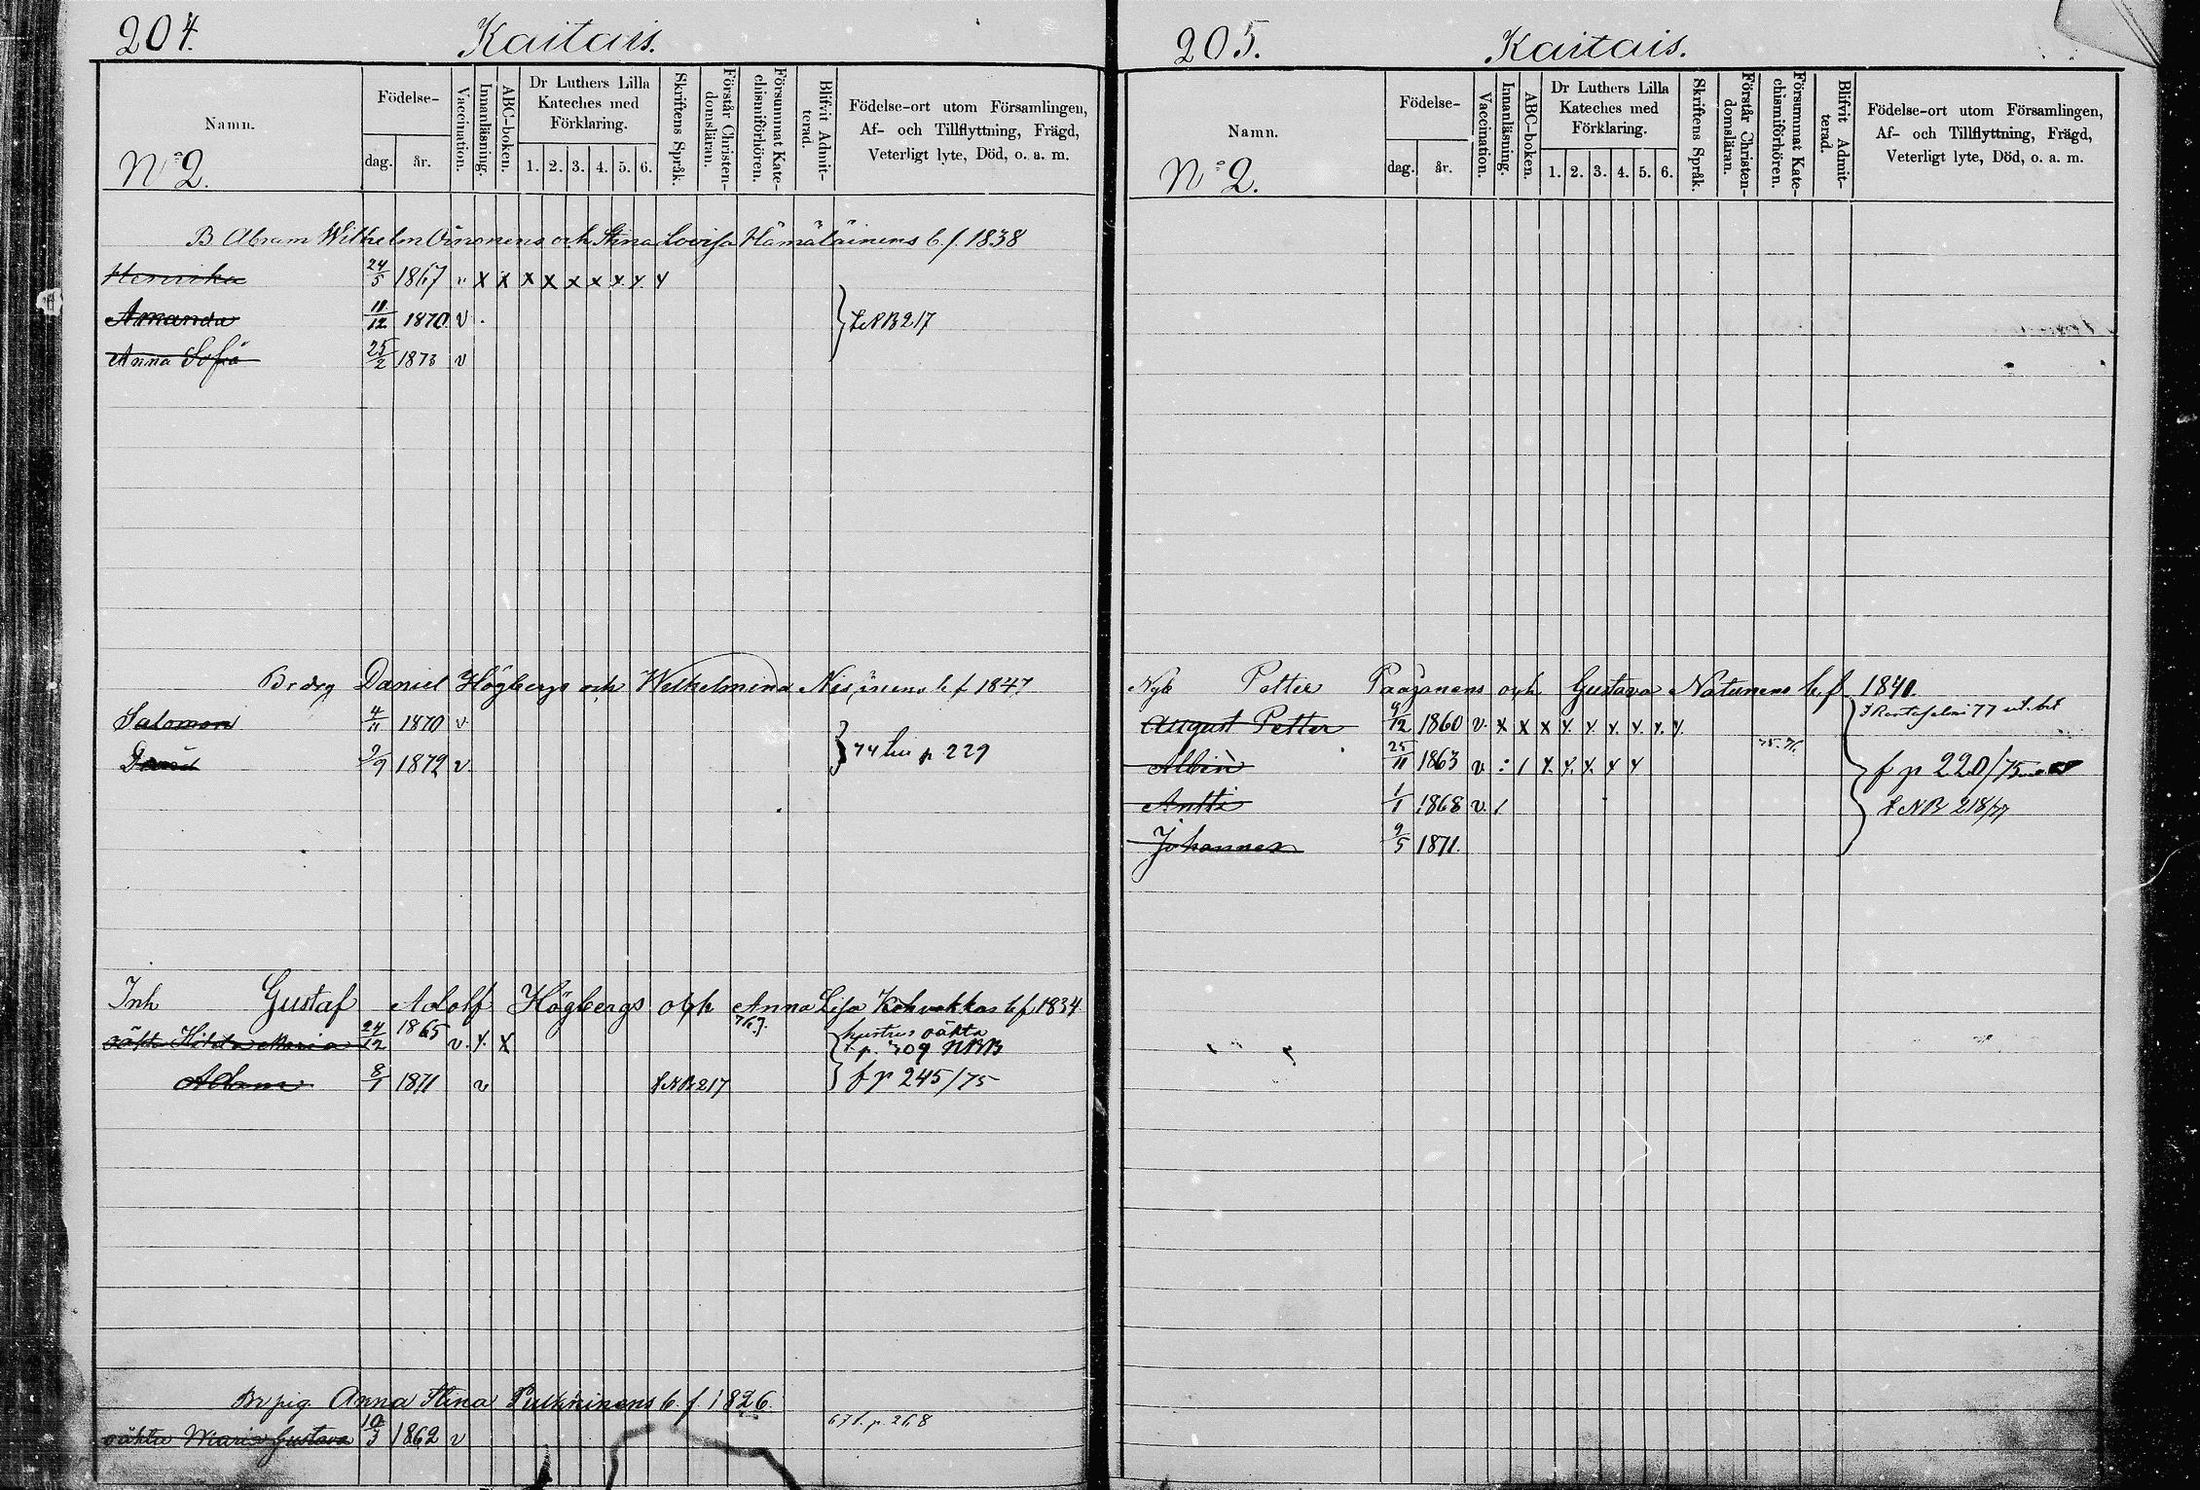 204.
Kaitais.
Namn.
Födelse-
dag.
år.
Vaccination.
Innanläsning.
ABC-boken.
Dr Luthers Lilla
Kateches med
Förklaring.
1. 2. 3. 4. 5. 6.
Skriftens Språk.
Förstår Christen-
domsläran.
Försummat Kate-
chismiförhören.
Blifvit Admit-
terad.
Födelse-ort utom Församlingen,
Af- och Tillflyttning, Frägd,
Veterligt lyte, Död, o. a. m.
N:o 2.
B Abram Wilhelm Oinonens och Stina Lovisa Hämäläinens b. f. 1838
Henrika 24/5 1867 v x x x x x x x x x
Amanda 11/12 1870. v
Anna Sofia 25/2 1873 v
NB 217
Br drg Daniel Högbergs och Wilhelmina b. f. 1847.
Salomon 4/11 1870 v.
David 2/9 1872 v.
p 229
Inh Gustaf Adolf Högbergs och Anna Lisa b f 1834.
oäkta Hilda Maria 24/12 1865 v. x. x
hustrus oäkta
f. p. 309 NBB
Adam 8/1 1871 v NB 217 f p 245/75
Br pig Anna Stina Pulkkinens b. f. 1826.
oäkta Maria Gustava 10/3 1862 v
67 f. p. 268
205.
Kaitais.
Namn.
Födelse-
dag.
år.
Vaccination.
Innanläsning.
ABC-boken.
Dr Luthers Lilla
Kateches med
Förklaring.
1. 2. 3. 4. 5. 6.
Skriftens Språk.
Förstår Christen-
domsläran.
Försummat Kate-
chismiförhören.
Blifvit Admit-
terad.
Födelse-ort utom Församlingen,
Af- och Tillflyttning, Frägd,
Veterligt lyte, Död, o. a. m.
N:o 2.
Petter Paajanens och Gustava Natunens b. f. 1840.
August Petter 9/12 1860 v. x x x x. x. x. x. x. x.
77 ut. bet
Albin 25/11 1863 v : / x. x. x. x x 75. 76. f p 220/75
Antti 1/1 1868 v. / NB 218/77
Johannes 9/5 1871.